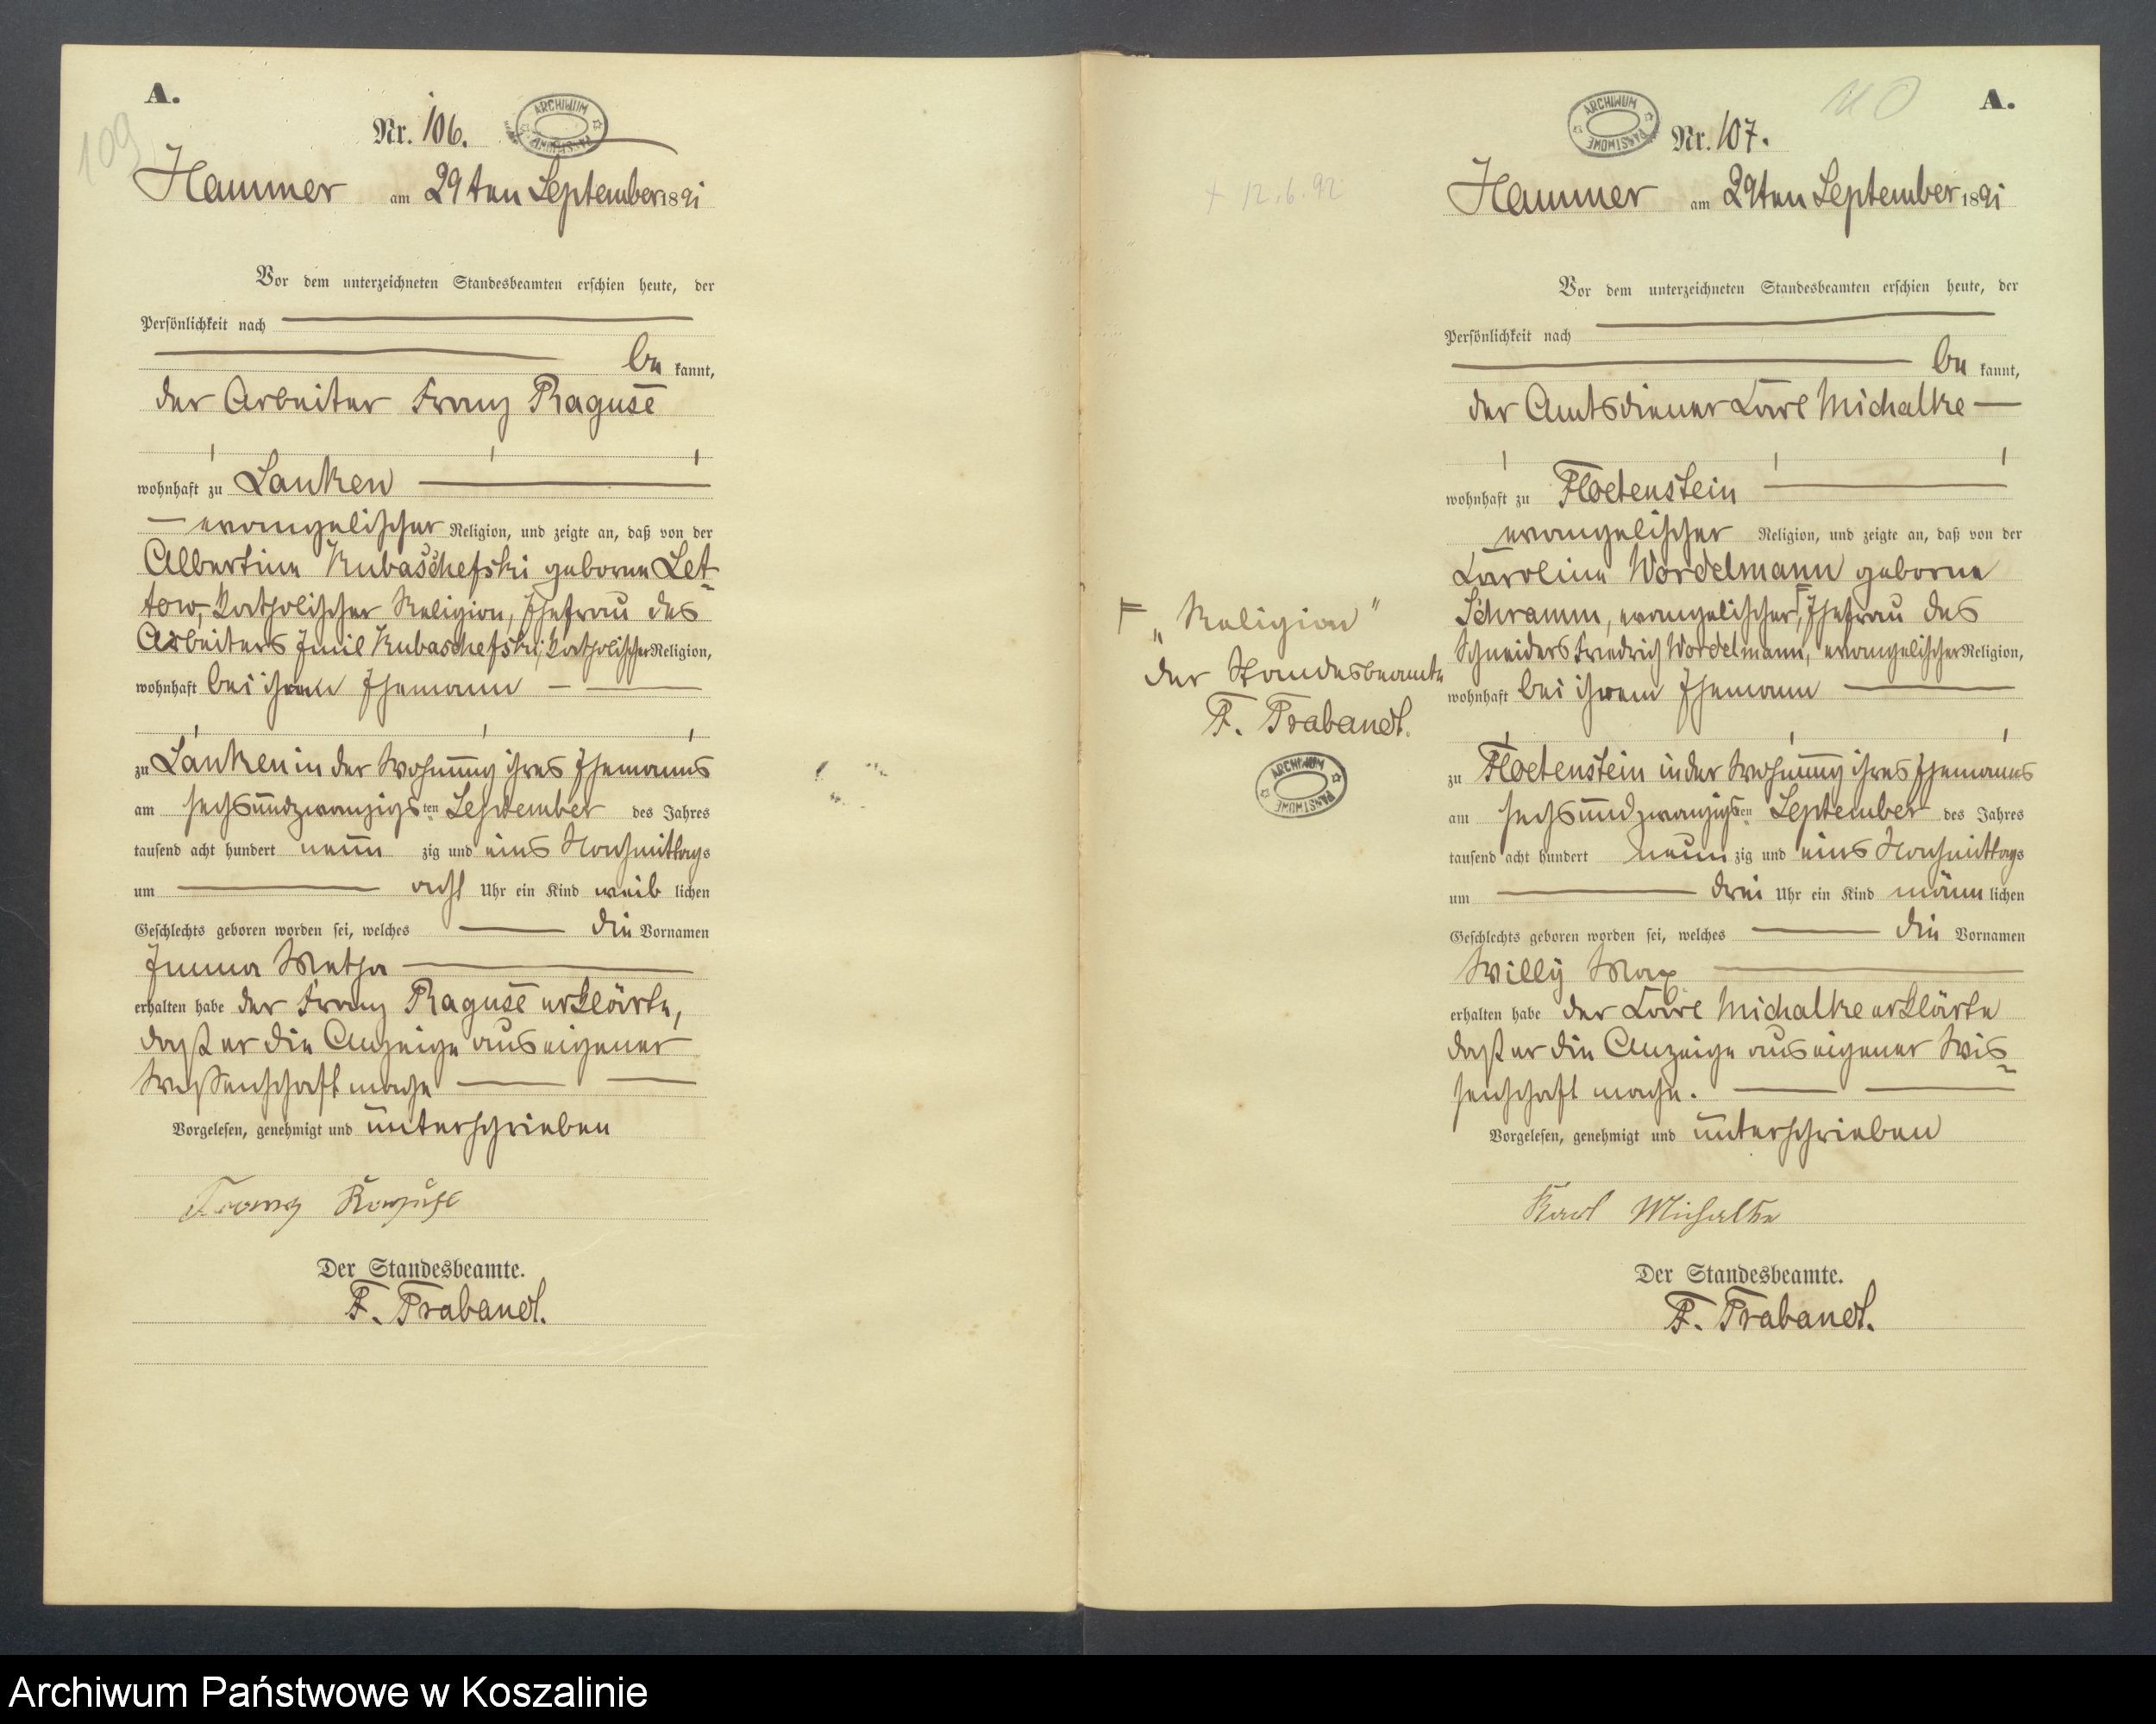 A.
109
Nr. 106.
ARCHIWUM PAŃSTWOWE
Hammer am 29ten September 1891
Vor dem unterzeichneten Standesbeamten erschien heute, der
Persönlichkeit nach
be kannt,
der Arbeiter Franz Raguse
wohnhaft zu Lanken
evangelischer Religion, und zeigte an, daß von der
Albertine Kubaschefski geborne Let-
tow, katholischer Religion, Ehefrau des
Arbeiters Emil Kubaschefski, katholischer Religion,
wohnhaft bei ihrem Ehemann
zu Lanken in der Wohnung ihres Ehemanns
am sechsundzwanzigsten September des Jahres
tausend acht hundert neun zig und eins Nachmittags
um acht Uhr ein Kind weib lichen
Geschlechts geboren worden sei, welches die Vornamen
Emma Metha
erhalten habe der Franz Raguse erklärte,
daß er die Anzeige aus eigener
Wissenschaft mache
Vorgelesen, genehmigt und unterschrieben
Franz Raguse
Der Standesbeamte.
F. Trabandt.
+ 12.6.92
F „Religion"
der Standesbeamte
F. Trabandt.
ARCHIWUM PAŃSTWOWE
110
A.
ARCHIWUM PAŃSTWOWE
Nr. 107.
Hammer am 29ten September 1891
Vor dem unterzeichneten Standesbeamten erschien heute, der
Persönlichkeit nach
be kannt,
der Amtsdiener Karl Michalke
wohnhaft zu Floetenstein
evangelischer Religion, und zeigte an, daß von der
Karoline Wordelmann geborne
Schramm, evangelischer, F Ehefrau des
Schneiders Friedrich Wordelmann, evangelischer Religion,
wohnhaft bei ihrem Ehemann
zu Floetenstein in der Wohnung ihres Ehemanns
am sechsundzwanzigsten September des Jahres
tausend acht hundert neun zig und eins Nachmittags
um drei Uhr ein Kind männ lichen
Geschlechts geboren worden sei, welches die Vornamen
Willy Max
erhalten habe der Karl Michalke erklärte
daß er die Anzeige aus eigener Wis-
senschaft mache.
Vorgelesen, genehmigt und unterschrieben
Karl Michalke
Der Standesbeamte.
F. Trabandt.
Archiwum Państwowe w Koszalinie